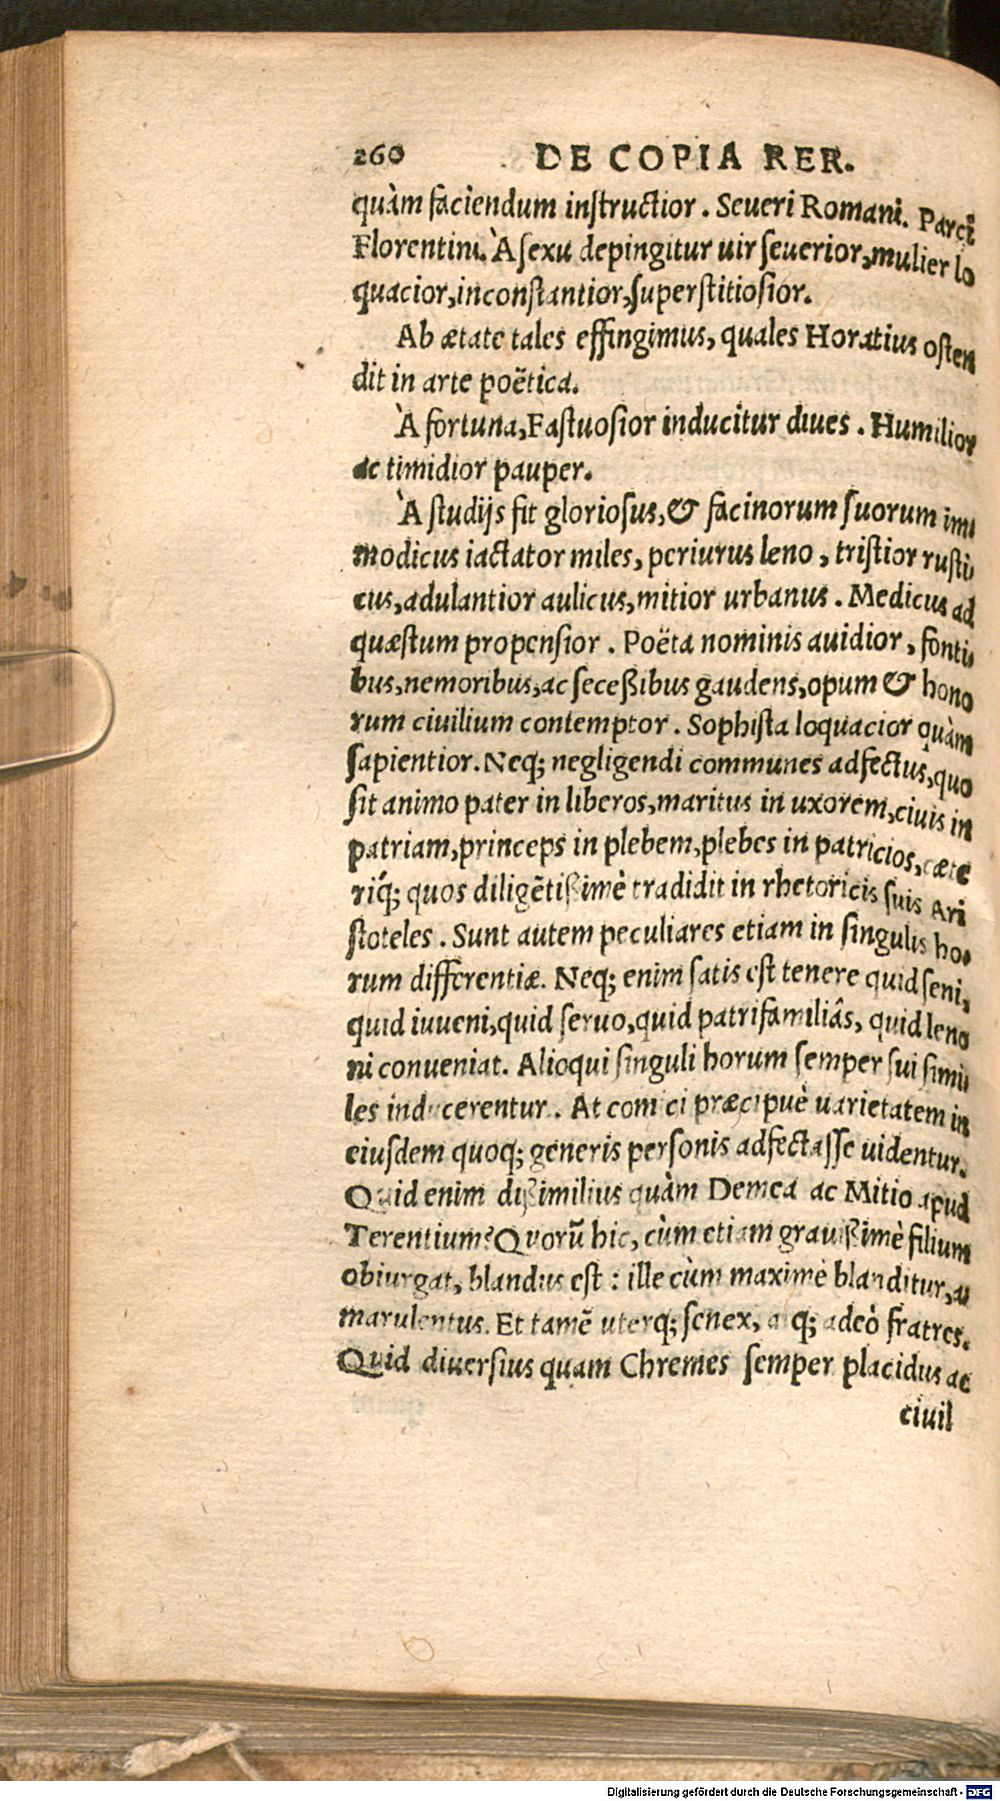 260 DE COPIA RER.
quàm faciendum inſtructior. Seueri Romani. Parci
Florentini. À ſexu depingitur uir ſeuerior, mulier lo
quacior, inconſtantior, ſuperſtitioſior.
Ab ætate tales effingimus, quales Horatius oſten
dit in arte poëtica.
À fortuna, Faſtuoſior inducitur diues. Humilior
ac timidior pauper.
À ſtudijs fit glorioſus, & facinorum ſuorum im-
modicus iactator miles, periurus leno, triſtior ruſti-
cus, adulantior aulicus, mitior urbanus. Medicus ad
quæſtum propenſior. Poëta nominis auidior, fonti-
bus, nemoribus, ac ſeceßibus gaudens, opum & hono
rum ciuilium contemptor. Sophiſta loquacior quàm
ſapientior. Neq; negligendi communes adfectus, quo
ſit animo pater in liberos, maritus in uxorem, ciuis in
patriam, princeps in plebem, plebes in patricios, cæte
riq́; quos diligẽtißimè tradidit in rhetoricis ſuis Ari
ſtoteles. Sunt autem peculiares etiam in ſingulis ho-
rum differentiæ. Neq; enim ſatis eſt tenere quid ſeni,
quid iuueni, quid ſeruo, quid patrifamiliâs, quid leno
ni conueniat. Alioqui ſinguli horum ſemper ſui ſimi-
les inducerentur. At comici præcipuè uarietatem in
eiuſdem quoq; generis perſonis adfectaſſe uidentur.
Quid enim dißimilius quàm Demea ac Mitio apud
Terentium? Quorũ hic, cùm etiam grauißimè filium
obiurgat, blandus eſt: ille cùm maximè blanditur, a-
marulentus. Et tamẽ uterq; ſenex, atq; adeò fratres.
Quid diuerſius quam Chremes ſemper placidus ac
ciuil
Digitalisierung gefördert durch die Deutsche Forschungsgemeinschaft - DFG